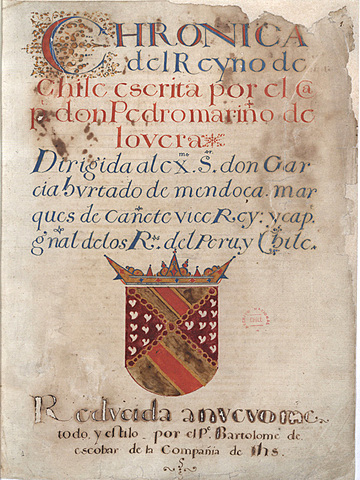 CHRONICA
del Reyno de
Chile escrita por el c@
p. don Pedro mariño de
lovera
Dirigida al exmo. Sor. don Gar
cia hurtado de mendoça. mar
ques de Cañete vice Rey: y cap.
gñal de los Rs. del Peru, y Chile.
Reducida a nuevo me
todo, y estilo. por el Pe. Bartolome de
escobar de la Compañia de ihs.